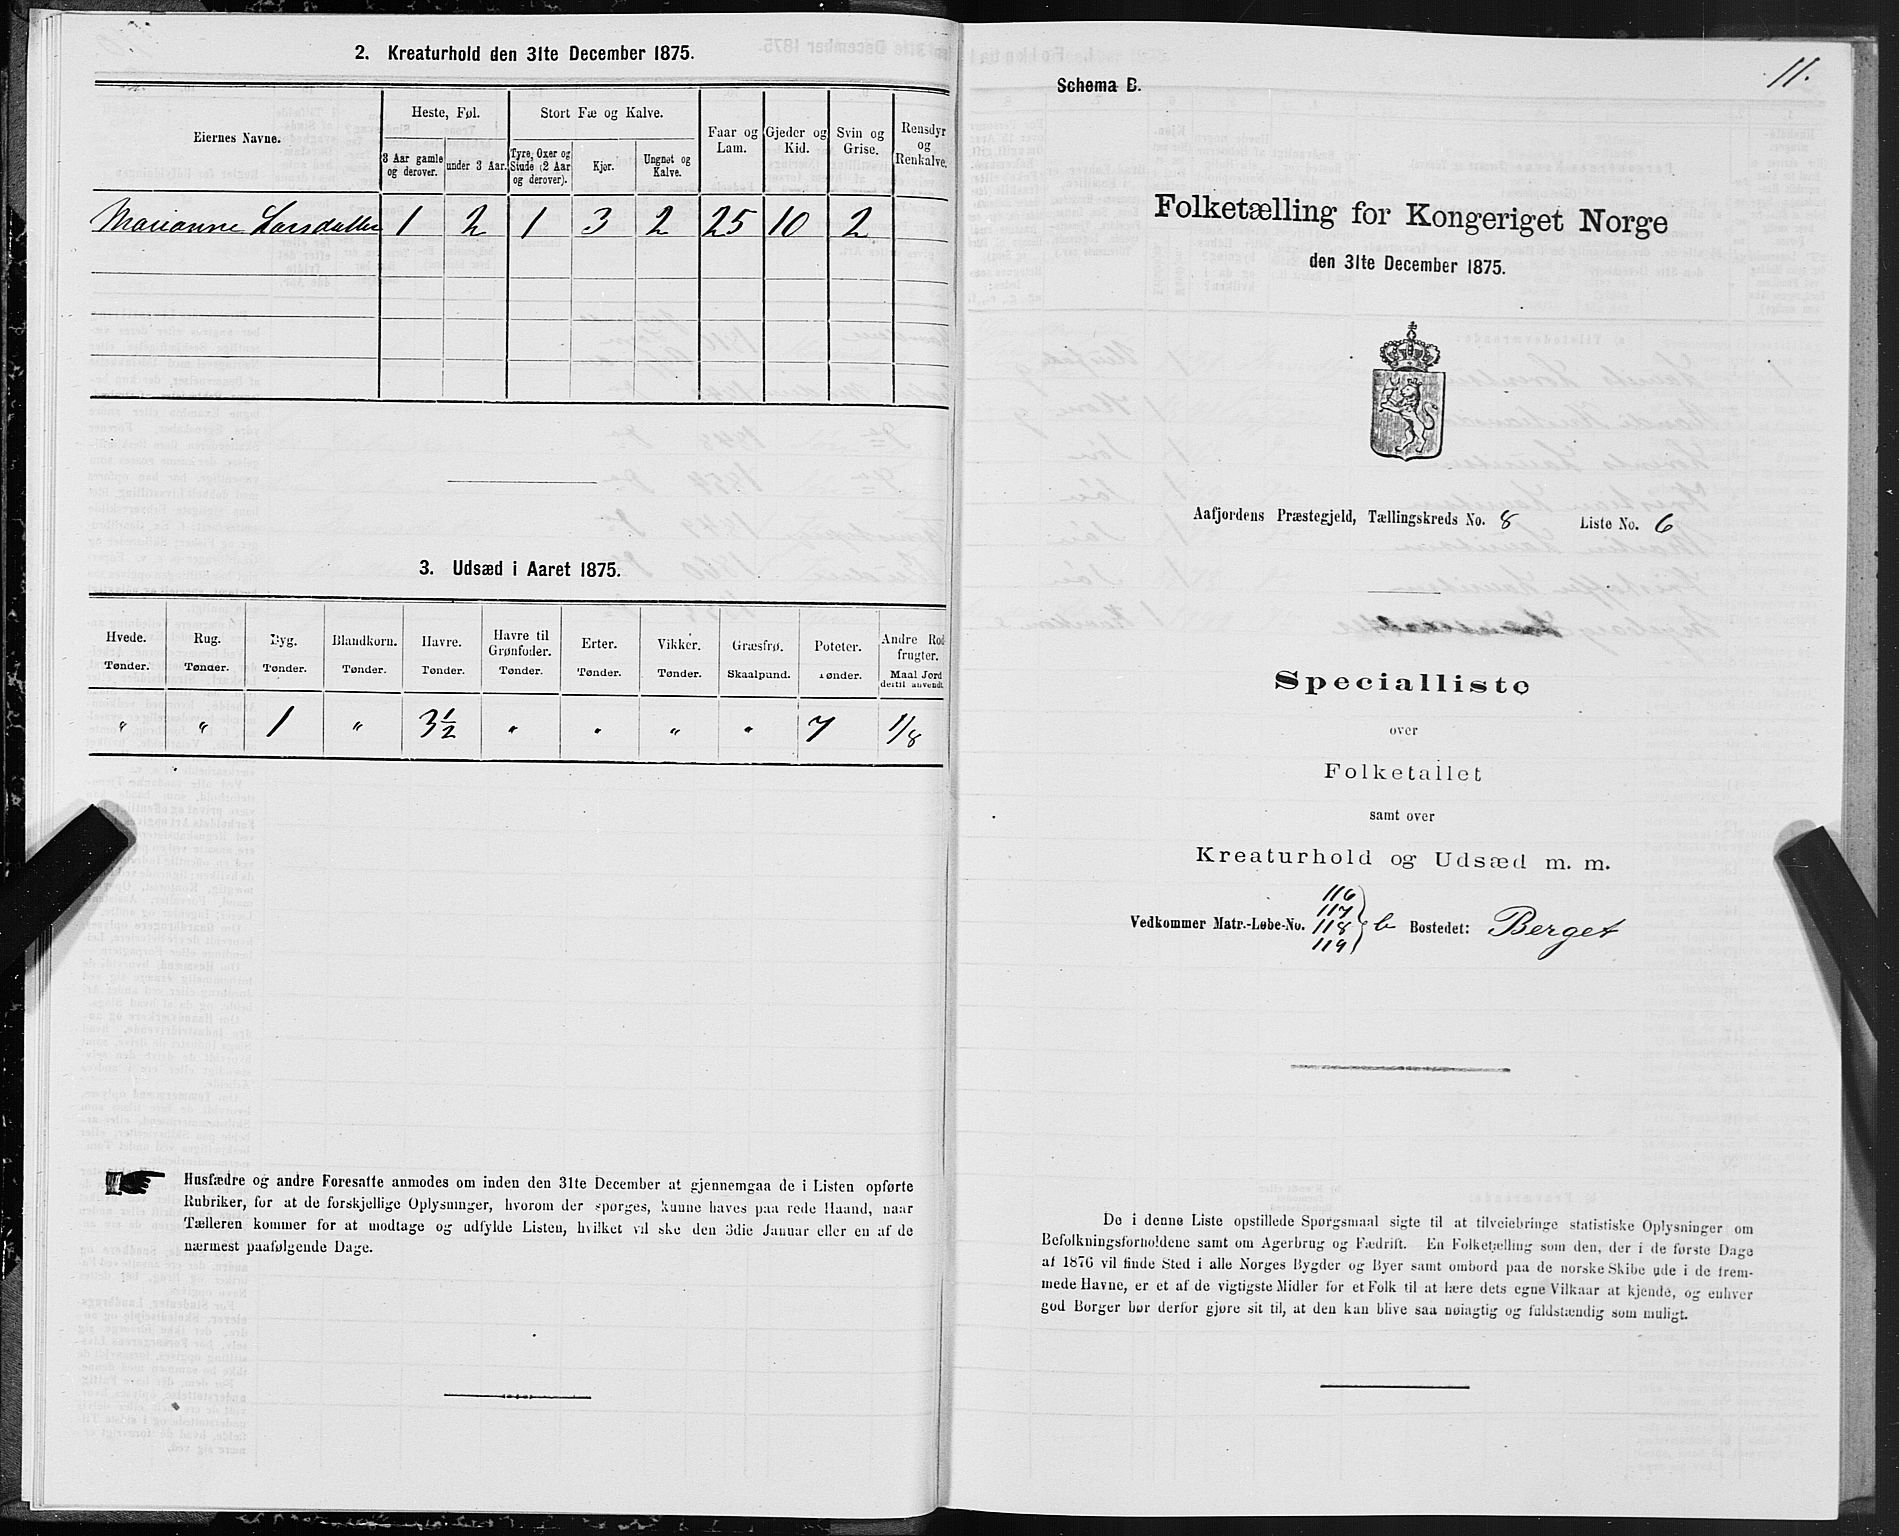 2. Kreaturhold den 31te December 1875.
Eiernes Navne.
Heste, Føl.
Stort Fæ og Kalve.
Faar og Lam.
Gjeder og Kid.
Svin og Grise.
Rensdyr og Renkalve.
3 Aar gamle og derover.
under 3 Aar.
Tyre, Oxer og Stude (2 Aar og derover).
Kjør.
Ungnøt og Kalve.
Marianne Larsdatter 1 2 1 3 2 25 10 2
3. Udsæd i Aaret 1875.
Hvede. Rug. Byg. Blandkorn. Havre. Havre til Grønfoder. Erter. Vikker. Græsfrø. Poteter. Andre Rodfrugter.
Tønder. Tønder. Tønder. Tønder. Tønder. Tønder. Tønder. Tønder. Skaalpund. Tønder. Maal Jord dertil anvendt
" " 1 " 3½ " " " " 7 1/8
Husfædre og andre Foresatte anmodes om inden den 31te December at gjennemgaa de i Listen opførte
Rubriker, for at de forskjellige Oplysninger, hvorom der spørges, kunne haves paa rede Haand, naar
Tælleren kommer for at modtage og udfylde Listen, hvilket vil ske den 3die Januar eller en af de
nærmest paafølgende Dage.
11.
Schema B.
Folketælling for Kongeriget Norge
den 31te December 1875.
Aafjordens Præstegjeld, Tællingskreds No. 8 Liste No. 6
Specialliste
over
Folketallet
samt over
Kreaturhold og Udsæd m. m.
116
117
Vedkommer Matr.-Løbe-No. 118 b Bostedet: Berget
119
De i denne Liste opstillede Spørgsmaal sigte til at tilveiebringe statistiske Oplysninger om
Befolkningsforholdene samt om Agerbrug og Fædrift. En Folketælling som den, der i de første Dage
af 1876 vil finde Sted i alle Norges Bygder og Byer samt ombord paa de norske Skibe ude i de frem-
mede Havne, er et af de vigtigste Midler for et Folk til at lære dets egne Vilkaar at kjende, og enhver
god Borger bør derfor gjøre sit til, at den kan blive saa nøiagtig og fuldstændig som muligt.